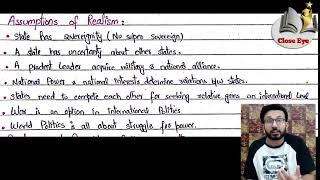 Assumptions of Realism:
Close Eye
• State has sovereignity (No supra sovereign)
• A state has uncertainty about other states.
• A prudent leader acquire military & national alliance.
• National Power & national interests determine relations b/w states.
• States need to compete each other for seeking relative gains on international level
• War is an option in International Politics
• World Politics is all about struggle for power.